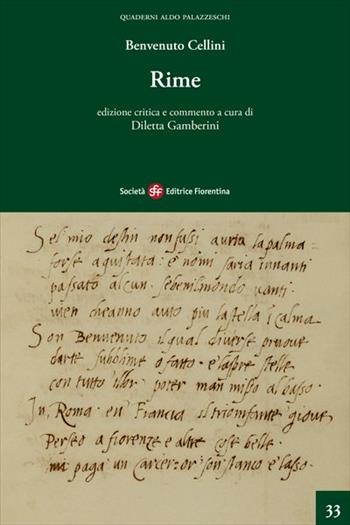 QUADERNI ALDO PALAZZESCHI
Benvenuto Cellini
Rime
edizione critica e commento a cura di
Diletta Gamberini
Società sef Editrice Fiorentina
Sel mio destin non fussi auria la palma
forse aquistata: e nomi saria innanti
passato alcun. sebenilmondo uanti
men cheanno auto piu la stella i calma
Son Benuenuto ilqual diuerse pruoue
darte sublime o fatto. e laspre stelle
con tutto illor. poter man misso albasso.
In, Roma. en Francia il trionfante gioue
Perseo a fiorenze e altre cose belle.
mi paga un carcer: or son stanco e lasso.
33